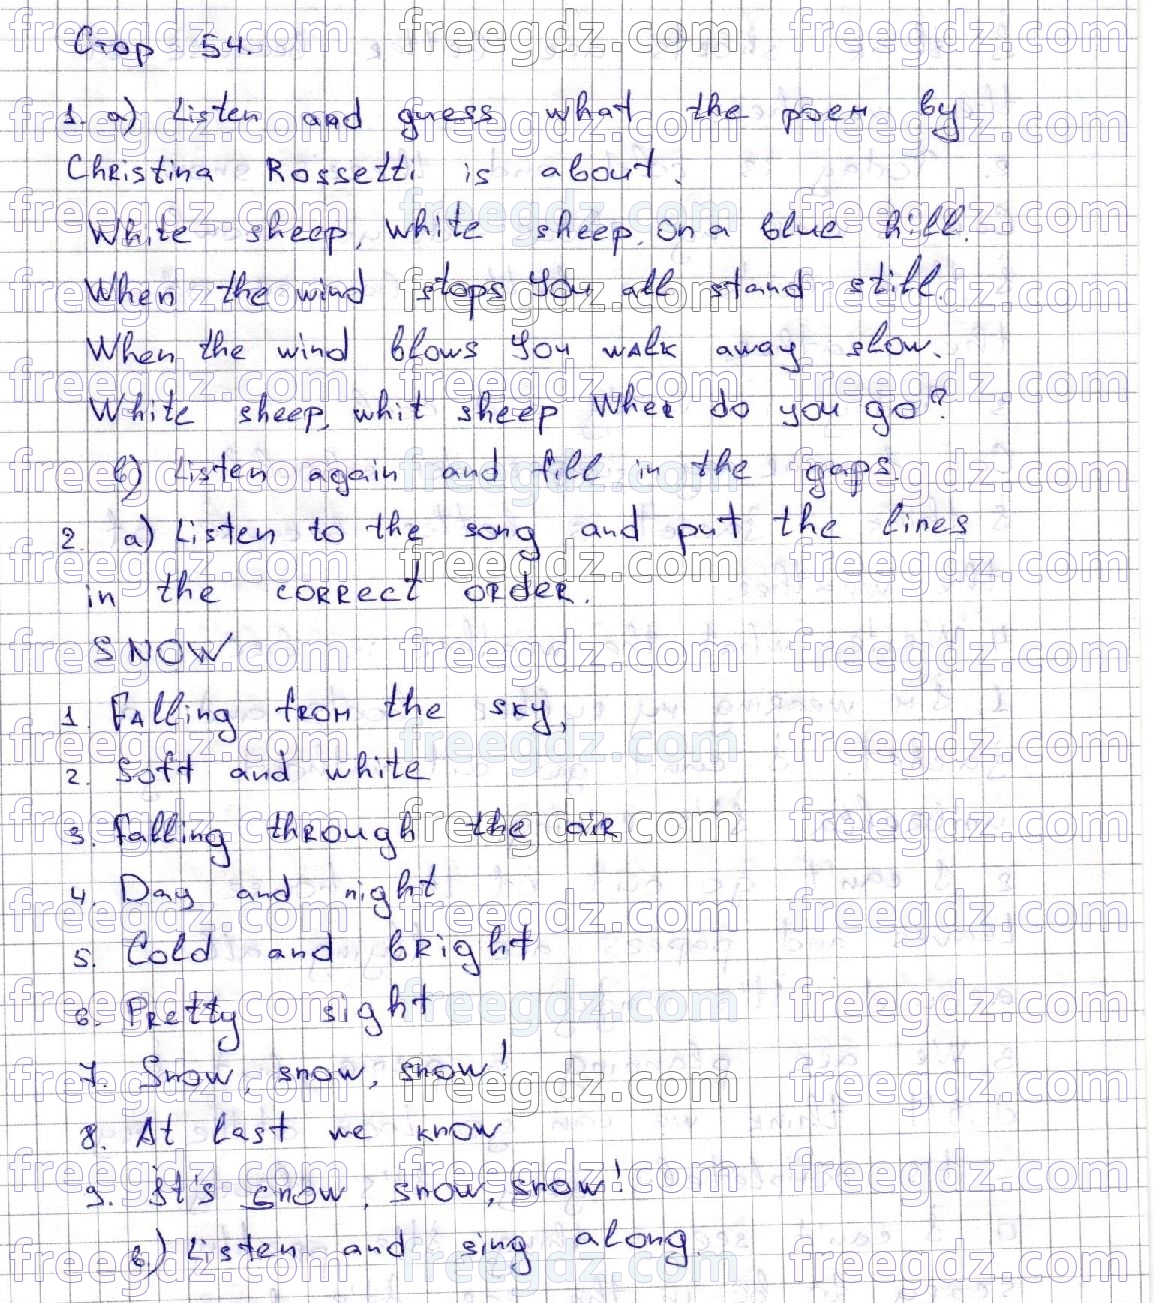 Стор 54.
1. a) Listen and guess what the poem by
Christina Rossetti is about.
White sheep, white sheep, On a blue hill.
When the wind stops You all stand still.
When the wind blows You walk away slow.
White sheep, whit sheep Wher do you go?
b) Listen again and fill in the gaps
2. a) Listen to the song and put the lines
in the correct order.
SNOW
1. Falling from the sky,
2. Soft and white
3. Falling through the air
4. Day and night
5. Cold and bright
6. Pretty sight
7. Snow, snow, snow!
8. At last we know
9. It's snow, snow, snow!
b.) Listen and sing along.
freegdz.com